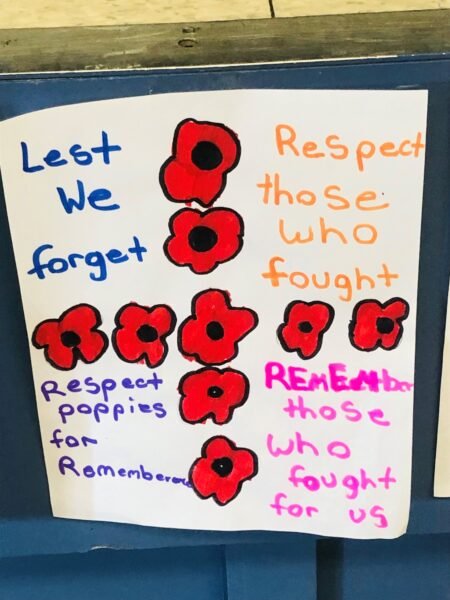 Lest
We
forget
Respect
those
who
fought
Respect
poppies
for
REmEmber
those
who
fought
for us